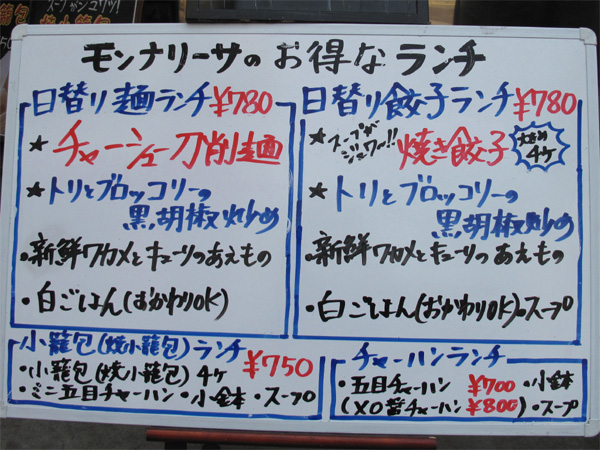 モンナリーサのお得なランチ
日替り麺ランチ¥780
★チャーシュー刀削麺
★トリとブロッコリーの
黒胡椒炒め
・新鮮ワカメとキューリのあえもの
・白ごはん(おかわりOK)
日替り餃子ランチ¥780
★スープがジュワー!!焼き餃子 大きめ4ケ
★トリとブロッコリーの
黒胡椒炒め
・新鮮ワカメとキューリのあえもの
・白ごはん(おかわりOK)・スープ
小籠包(焼小籠包)ランチ ¥750
・小籠包(焼小籠包)4ケ
・ミニ五目チャーハン・小鉢・スープ
チャーハンランチ
・五目チャーハン ¥700 ・小鉢
(XO醤チャーハン ¥800)・スープ